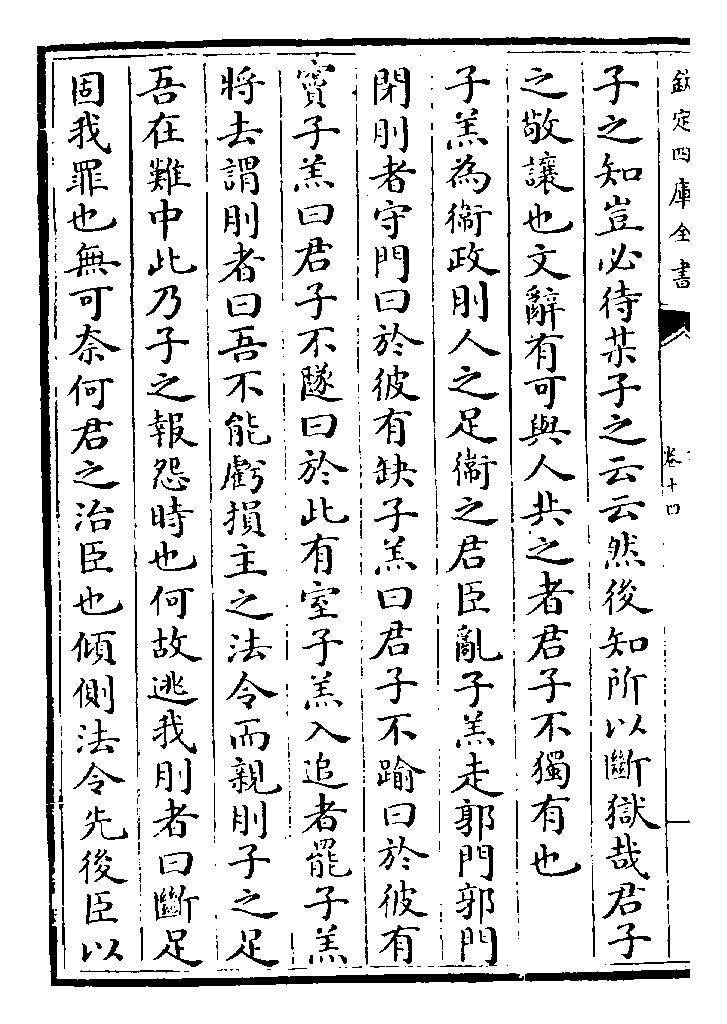 欽定四庫全書
卷十四
子之知豈必待某子之云云然後知所以斷獄哉君子
之敬讓也文辭有可與人共之者君子不獨有也
子羔為衞政刖人之足衞之君臣亂子羔走郭門郭門
閉刖者守門曰於彼有缺子羔曰君子不踰曰於彼有
竇子羔曰君子不隧曰於此有室子羔入追者罷子羔
將去謂刖者曰吾不能虧損主之法令而親刖子之足
吾在難中此乃子之報怨時也何故逃我刖者曰斷足
固我罪也無可奈何君之治臣也傾側法令先後臣以